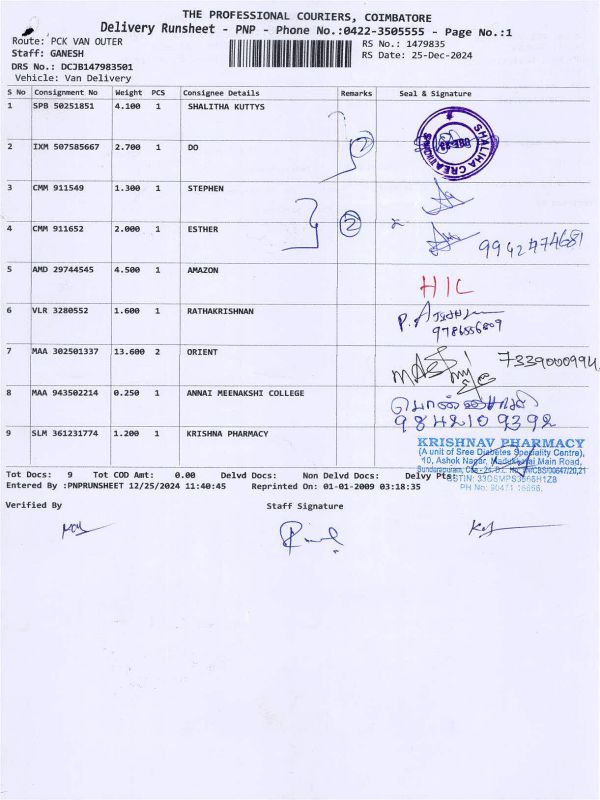 THE PROFESSIONAL COURIERS, COIMBATORE
Delivery Runsheet - PNP - Phone No.:0422-3505555 - Page No.:1
Route: PCK VAN OUTER
RS No.: 1479835
Staff: GANESH
RS Date: 25-Dec-2024
DRS No.: DCJB147983501
Vehicle: Van Delivery
S No Consignment No Weight PCS Consignee Details Remarks Seal & Signature
1 SPB 50251851 4.100 1 SHALITHA KUTTYS
2 IXM 507585667 2.700 1 DO
3 CMM 911549 1.300 1 STEPHEN
4 CMM 911652 2.000 1 ESTHER 2 9942474681
5 AMD 29744545 4.500 1 AMAZON HIL
6 VLR 3280552 1.600 1 RATHAKRISHNAN
7 MAA 302501337 13.600 2 ORIENT
8 MAA 943502214 0.250 1 ANNAI MEENAKSHI COLLEGE 9842109392
9 SLM 361231774 1.200 1 KRISHNA PHARMACY
KRISHNAV PHARMACY
(A unit of Sree Diabetes Speciality Centre),
10, Ashok Nagar, Madukkarai Main Road,
Tot Docs: 9 Tot COD Amt: 0.00 Delvd Docs: Non Delvd Docs: Delvy Pts:
Entered By :PNPRUNSHEET 12/25/2024 11:40:45 Reprinted On: 01-01-2009 03:18:35
Verified By
Staff Signature